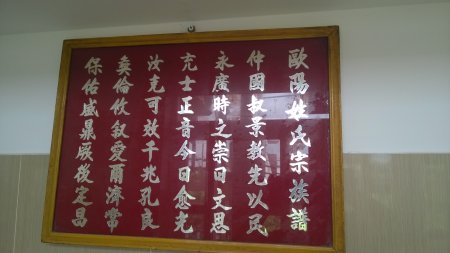 歐陽姓氏宗族譜
仲國叔景敦先以民
永廣時之崇曰文恩
充士正音今日愈光
汝克可效千兆孔良
彝俗攸叙愛爾濟常
保佑盛鼎厥後定昌